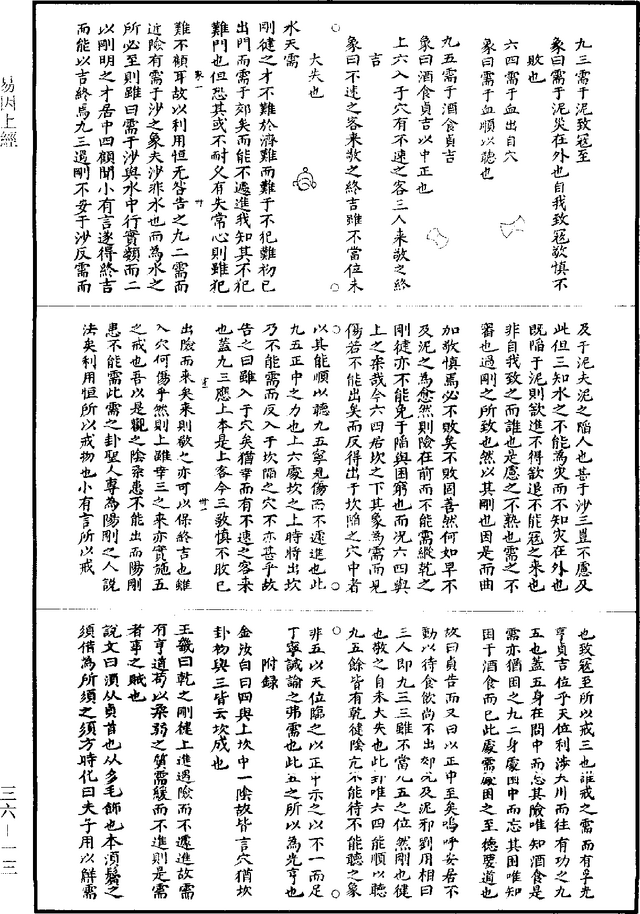 九三需于泥致寇至
象曰需于泥災在外也自我致寇敬慎不
敗也
六四需于血出自穴
象曰需于血順以聽也
九五需于酒食貞吉
象曰酒食貞吉以中正也
上六入于穴有不速之客三人來敬之終
吉
象曰不速之客來敬之終吉雖不當位未
大失也
水天需
剛健之才不難於濟難而難于不犯難初已
出門而需于郊矣而能不遽進我知其不犯
難門也但恐其或不耐久有失常心則雖犯
卷一
難不顧耳故以利用恒无咎告之九二需而
近險有需于沙之象夫沙非水也而為水之
所必至則雖曰需于沙與水中行實類而二
以剛明之才居中四顧聞小有言遂得終吉
而能以吉終焉九三過剛不安于沙反需而
及于泥夫泥之陷人也甚于沙三豈不慮及
此但三知水之不能為灾而不知灾在外也
既陷于泥則欲進不得欲退不能寇之來也
非自我致之而誰也是慮之不熟也需之不
審也過剛之所致也然以其剛也因是而曲
加敬慎焉必不敗矣不敗固善然何如早不
及泥之為愈然則險在前而不能需縱乾之
剛健亦不能免于陷與困窮也而况六四與
上之柔哉今六四居坎之下其象為需而見
傷若不能出矣而反得出于坎陷之穴中者
以其能順以聽九五寧見傷而不遽進也此
九五正中之力也上六處坎之上時將出坎
乃不能需而反入于坎陷之穴不亦甚乎故
告之曰雖入于穴矣猶幸而有不速之客來
也蓋九三應上本是上客今三敬慎不敗已
出險而來矣來則敬之亦可以保終吉也雖
入穴何傷乎然則上雖幸三之來亦實施五
之戒也吾以是觀之陰柔患不能出而陽剛
患不能需此需之卦聖人專為陽剛之人說
法矣利用恒所以戒物也小有言所以戒
也致寇至所以戒三也誰戒之需而有孚光
亨貞吉位乎天位利涉大川而往有功之九
五也蓋五身在險中而忘其險唯知酒食是
需亦猶困之九二身處困中而忘其困唯知
困于酒食而已此處需處困之至德要道也
故曰貞吉而又曰以中正至矣嗚呼安若不
動以待食飲尚不出郊况及泥邪到用相曰
三人即九三三雖不當九五之位然剛也健
也敬之自未大失也此卦唯六四能順以聽
九五餘皆有乾健陰亢不能待不能聽之象
非五以天位臨之以正中示之以不一而足
丁寧誡諭之弗需也此五之所以為光亨也
附録
金汝白曰四與上坎中一陰故皆言穴猶坎
卦初與三皆云坎成也
王畿曰乾之剛健上進遇險而不遽進故需
有亨道苟以柔弱之質需緩而不進則是需
者事之賊也
說文曰須从頁首也从彡毛飾也本湏鬚之
須借為所須之須方時化曰夫子用以解需
易因上經
三六—一三